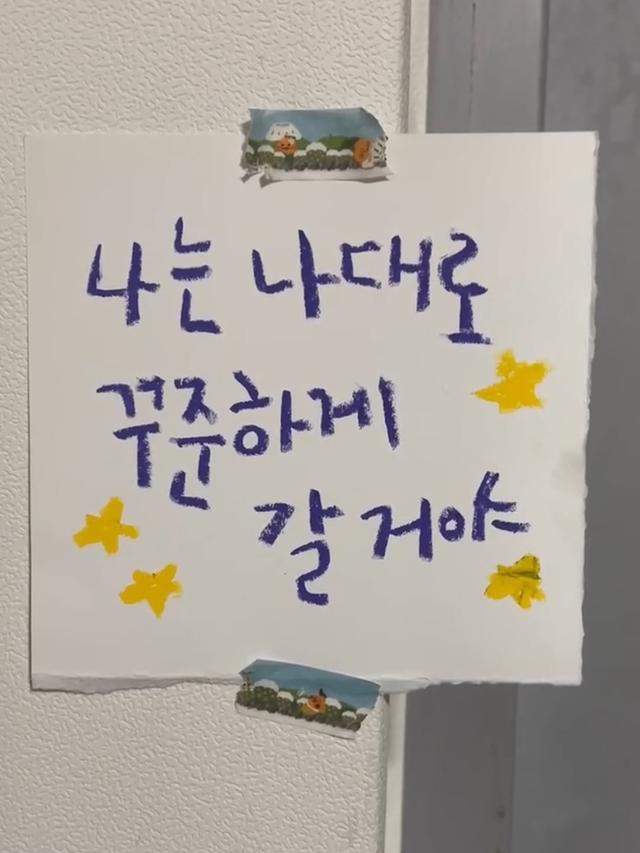 나는 나대로
꾸준하게
갈 거야